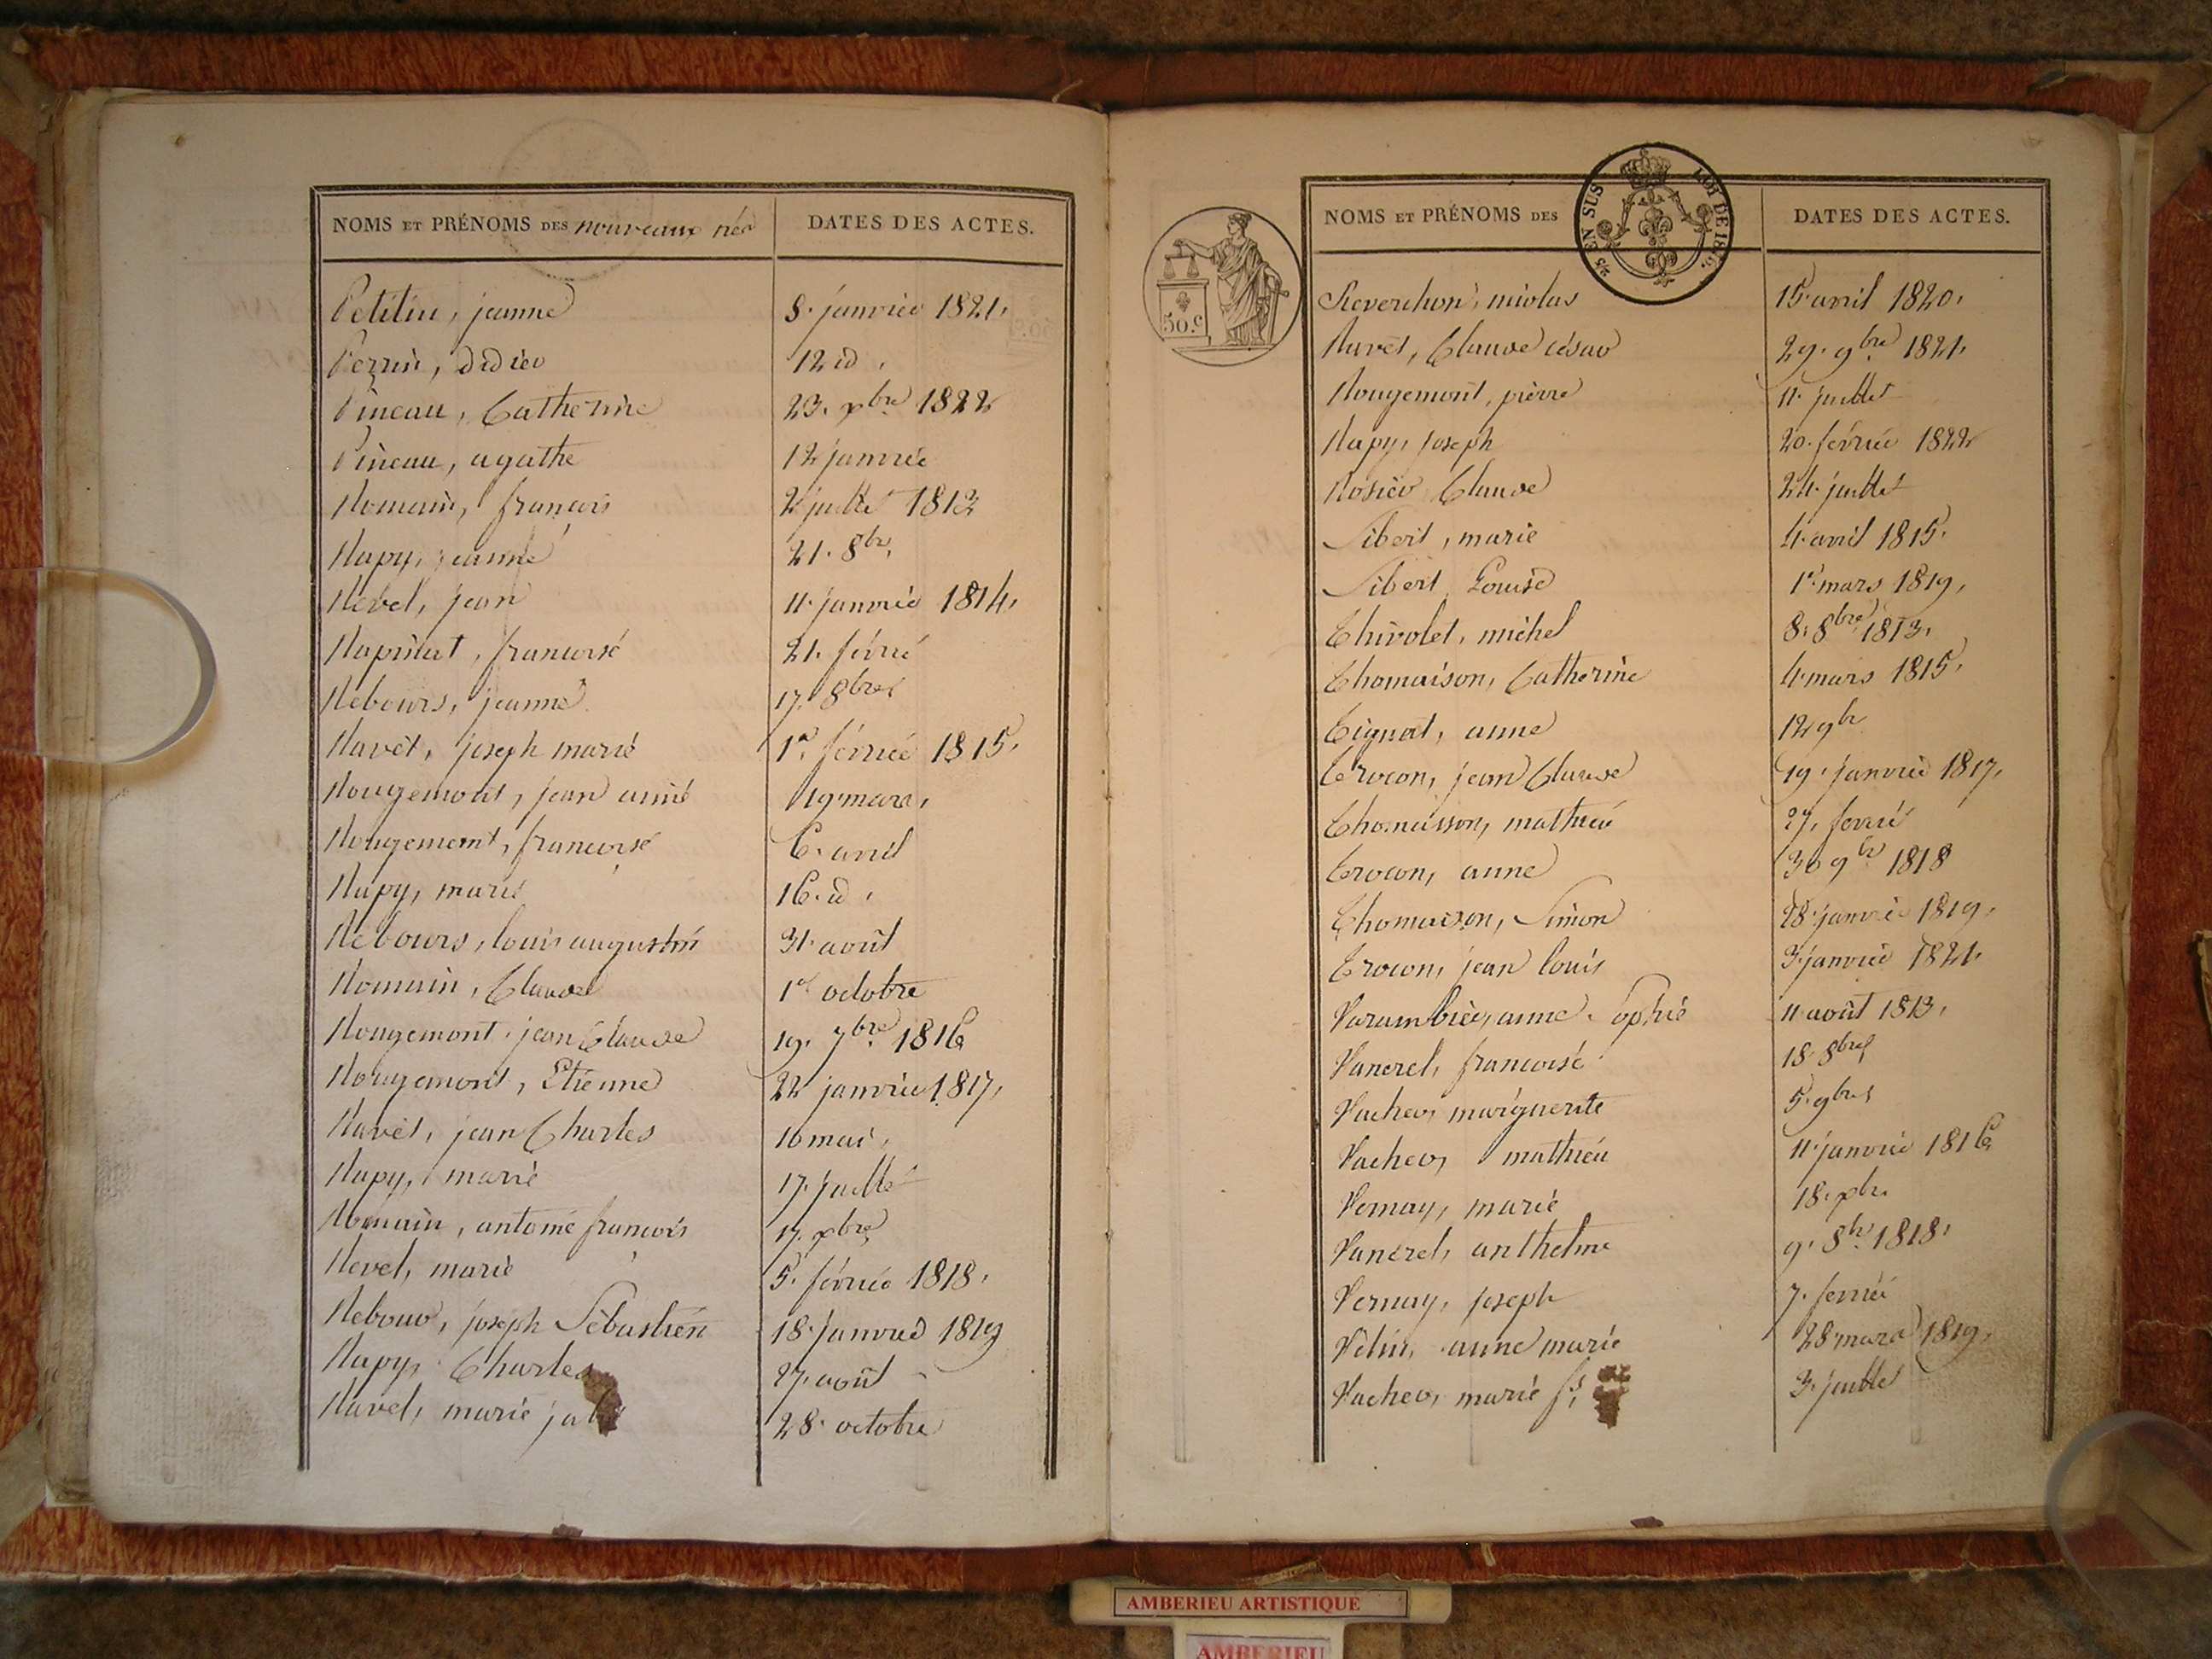 NOMS ET PRÉNOMS DES nouveaux nés DATES DES ACTES.
Petitin, jeanne 8. janvier 1821.
Perrin, didier 12 id.
Pineau, Catherine 23. xbre 1822
Pineau, agathe 12 janvier
Romain, françois 2 juillet 1813
Rapy, jeanne 21. 8bre
Revel, jean 11. janvier 1814.
françoise 21. février
Rebours, jeanne 17. 8bre
Ravet, joseph marie 1er. février 1815.
Rougemont, jean aimé 19 mars.
Rougemont, françoise 6. avril
Rapy, marie 16. id.
Rebours, louis augustin 31. août
Romain, Claude 1er octobre
Rougemont, jean Claude 19. 7bre. 1816
Rougemont, Etienne 22 janvier 1817.
Ravet, jean Charles 10 mai.
Rapy, marie 17. juillet
Romain, antoine françois 17. xbre
Revel, marie 5. février 1818.
Rebour, joseph Sébastien 18. janvier 1819
Rapy, Charles 27. août
Ravet, marie 28. octobre
NOMS ET PRÉNOMS DES DATES DES ACTES.
25 EN SUS LOI DE 1816.
50.c
Reverchon, nicolas 15. avril 1820.
Ravet, Claude césar 29. 9bre 1821.
Rougemont, pierre 11. juillet
Rapy, joseph 20. février 1822
Rosier Claude 24. juillet
Sibert, marie 4. avril 1815.
Sibert Louise 1er. mars 1819.
Thivolet, michel 8. 8bre 1813.
Thomaison, Catherine 4. mars 1815.
Tignat, anne 12 9bre
Trocon, jean Claude 19. janvier 1817.
Thomaisson, mathieu 27. février
Trocon, anne 30 9bre 1818
Thomaison, Simon 28. janvier 1819.
Trocon, jean louis 3. janvier 1821.
Varambier, anne Sophie 11 août 1813.
Vancrel, françoise 18. 8bre
Vacher, marguerite 5. 9bre
Vacher, mathieu 11. janvier 1816
Vernay, marie 18. xbre
Vancrel, anthelme 9. 8bre. 1818.
Vernay, joseph 7. février
anne marie 28 mars 1819.
Vacher, marie 3. juillet
AMBERIEU ARTISTIQUE
AMBERIEU